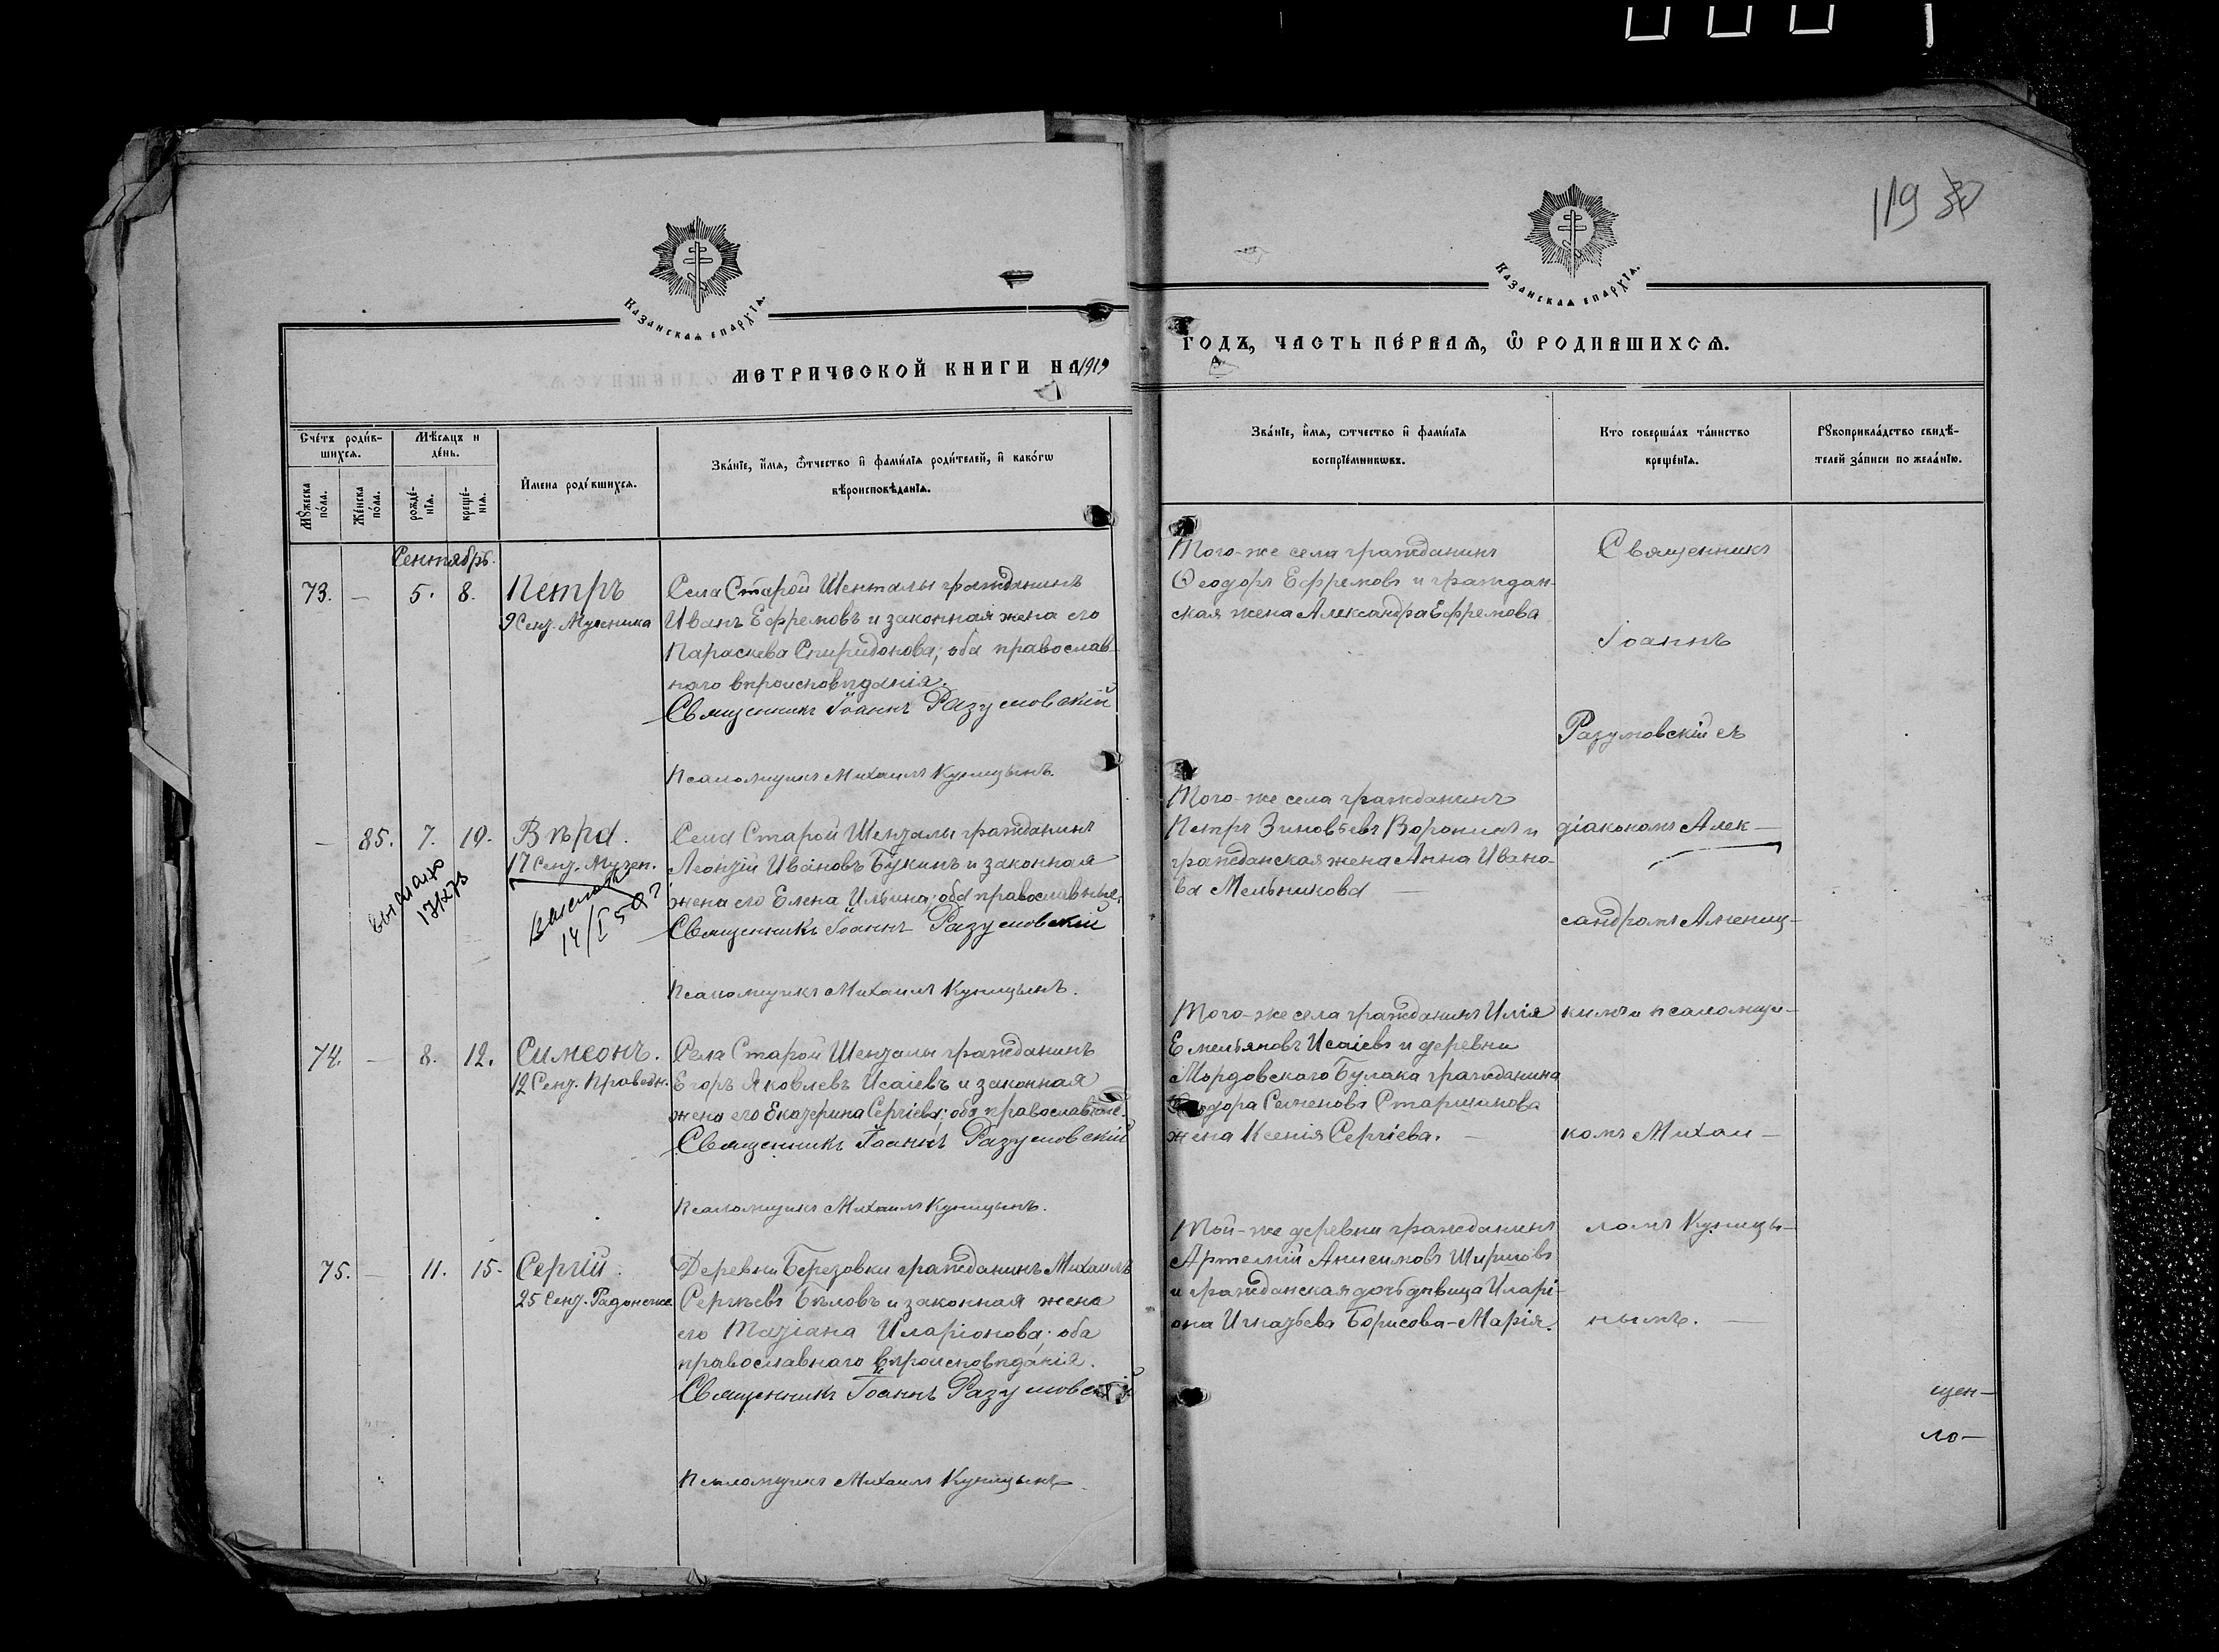 119 30
Казанская епархїя.
Казанская епархїя.
Метрической книги на 1919
годъ, часть пе́рвая, ѡ҆ родившихся.
Сче́тъ роди́в-
шихся.
Мѣ́сяцъ и
де́нь.
Му́жеска
по́ла.
Же́нска
по́ла.
рожде́-
нїя.
креще́-
нїя.
И҆мена роди́вшихся.
Зва́нїе, и҆́мя, ѻ҆́тчество и҆ фами́лїя роди́телей, и҆ како́гѡ
вѣроисповѣ́данїя.
Зва́нїе, и҆́мя, ѻ҆́тчество и҆ фами́лїя
воспрїе́мникѡвъ.
Кто соверша́лъ та́инство
креще́нїя.
Рꙋкоприкла́дство свидѣ́-
телей за́писи по жела́нїю.
Сентябрь.
73. — 5. 8. Петръ
9 Сент. Мученика
Села Старой Шенталы гражданинъ
Иванъ Ефремовъ и законная жена его
Параскева Спиридонова; оба православ-
наго вѣроисповѣданія.
Священникъ Іоаннъ Разумовскій
Псаломщикъ Михаилъ Куницынъ.
Того-же села гражданинъ
Ѳеодоръ Ефремовъ и граждан-
ская жена Александра Ефремова
Священникъ
Іоаннъ
Разумовскій съ
— 85. 7. 10. Вѣра.
17 Сент. Мучен.
Села Старой Шенталы гражданинъ
Леонтій Ивановъ Букинъ и законная
жена его Елена Ильина; оба православные.
Священникъ Іоаннъ Разумовскій
Псаломщикъ Михаилъ Куницынъ.
14/I 5
Того-же села гражданинъ
Петръ Зиновьевъ Воронинъ и
гражданская жена Анна Ивано-
ва Мельникова —
діакономъ Алек —
сандромъ Амениц-
74. — 8. 12. Симеонъ.
12 Сент. Праведн.
Села Старой Шенталы гражданинъ
Егоръ Яковлевъ Исаіевъ и законная
жена его Екатерина Сергіева; оба православные.
Священникъ Іоаннъ Разумовскій
Псаломщикъ Михаилъ Куницынъ.
Того-же села гражданинъ Илія
Емельяновъ Исаіевъ и деревни
Мордовскаго Булака гражданина
Ѳеодора Семенова Старшинова
жена Ксенія Сергіева. —
кимъ и псаломщи-
комъ Михаи —
75. — 11. 15. Сергій.
25 Сент. Радонеж.
Деревни Березовки гражданинъ Михаилъ
Сергѣевъ Бѣловъ и законная жена
его Татіана Иларіонова; оба
православнаго вѣроисповѣданія.
Священникъ Іоаннъ Разумовскій
Псаломщикъ Михаилъ Куницынъ.
Той-же деревни гражданинъ
Артемій Анисимовъ Ширшовъ
и гражданская дочь дѣвица Иларі-
она Игнатьева Борисова-Марія.
ломъ Куницы-
нымъ. —
щен-
ло-